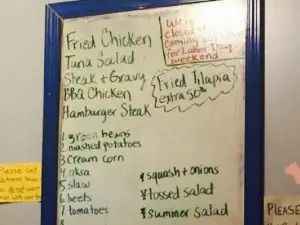 Fried Chicken
Tuna Salad
Steak + Gravy
BBQ Chicken
Hamburger Steak
closed
coming
for Labor Day
weekend
Fried Tilapia
extra 50¢
1. green beans
2. mashed potatoes
3 cream corn
4. okra
5. slaw
6. beets
7. tomatoes
8
* squash + onions
* tossed salad
* summer salad
Please Let
PLEASE